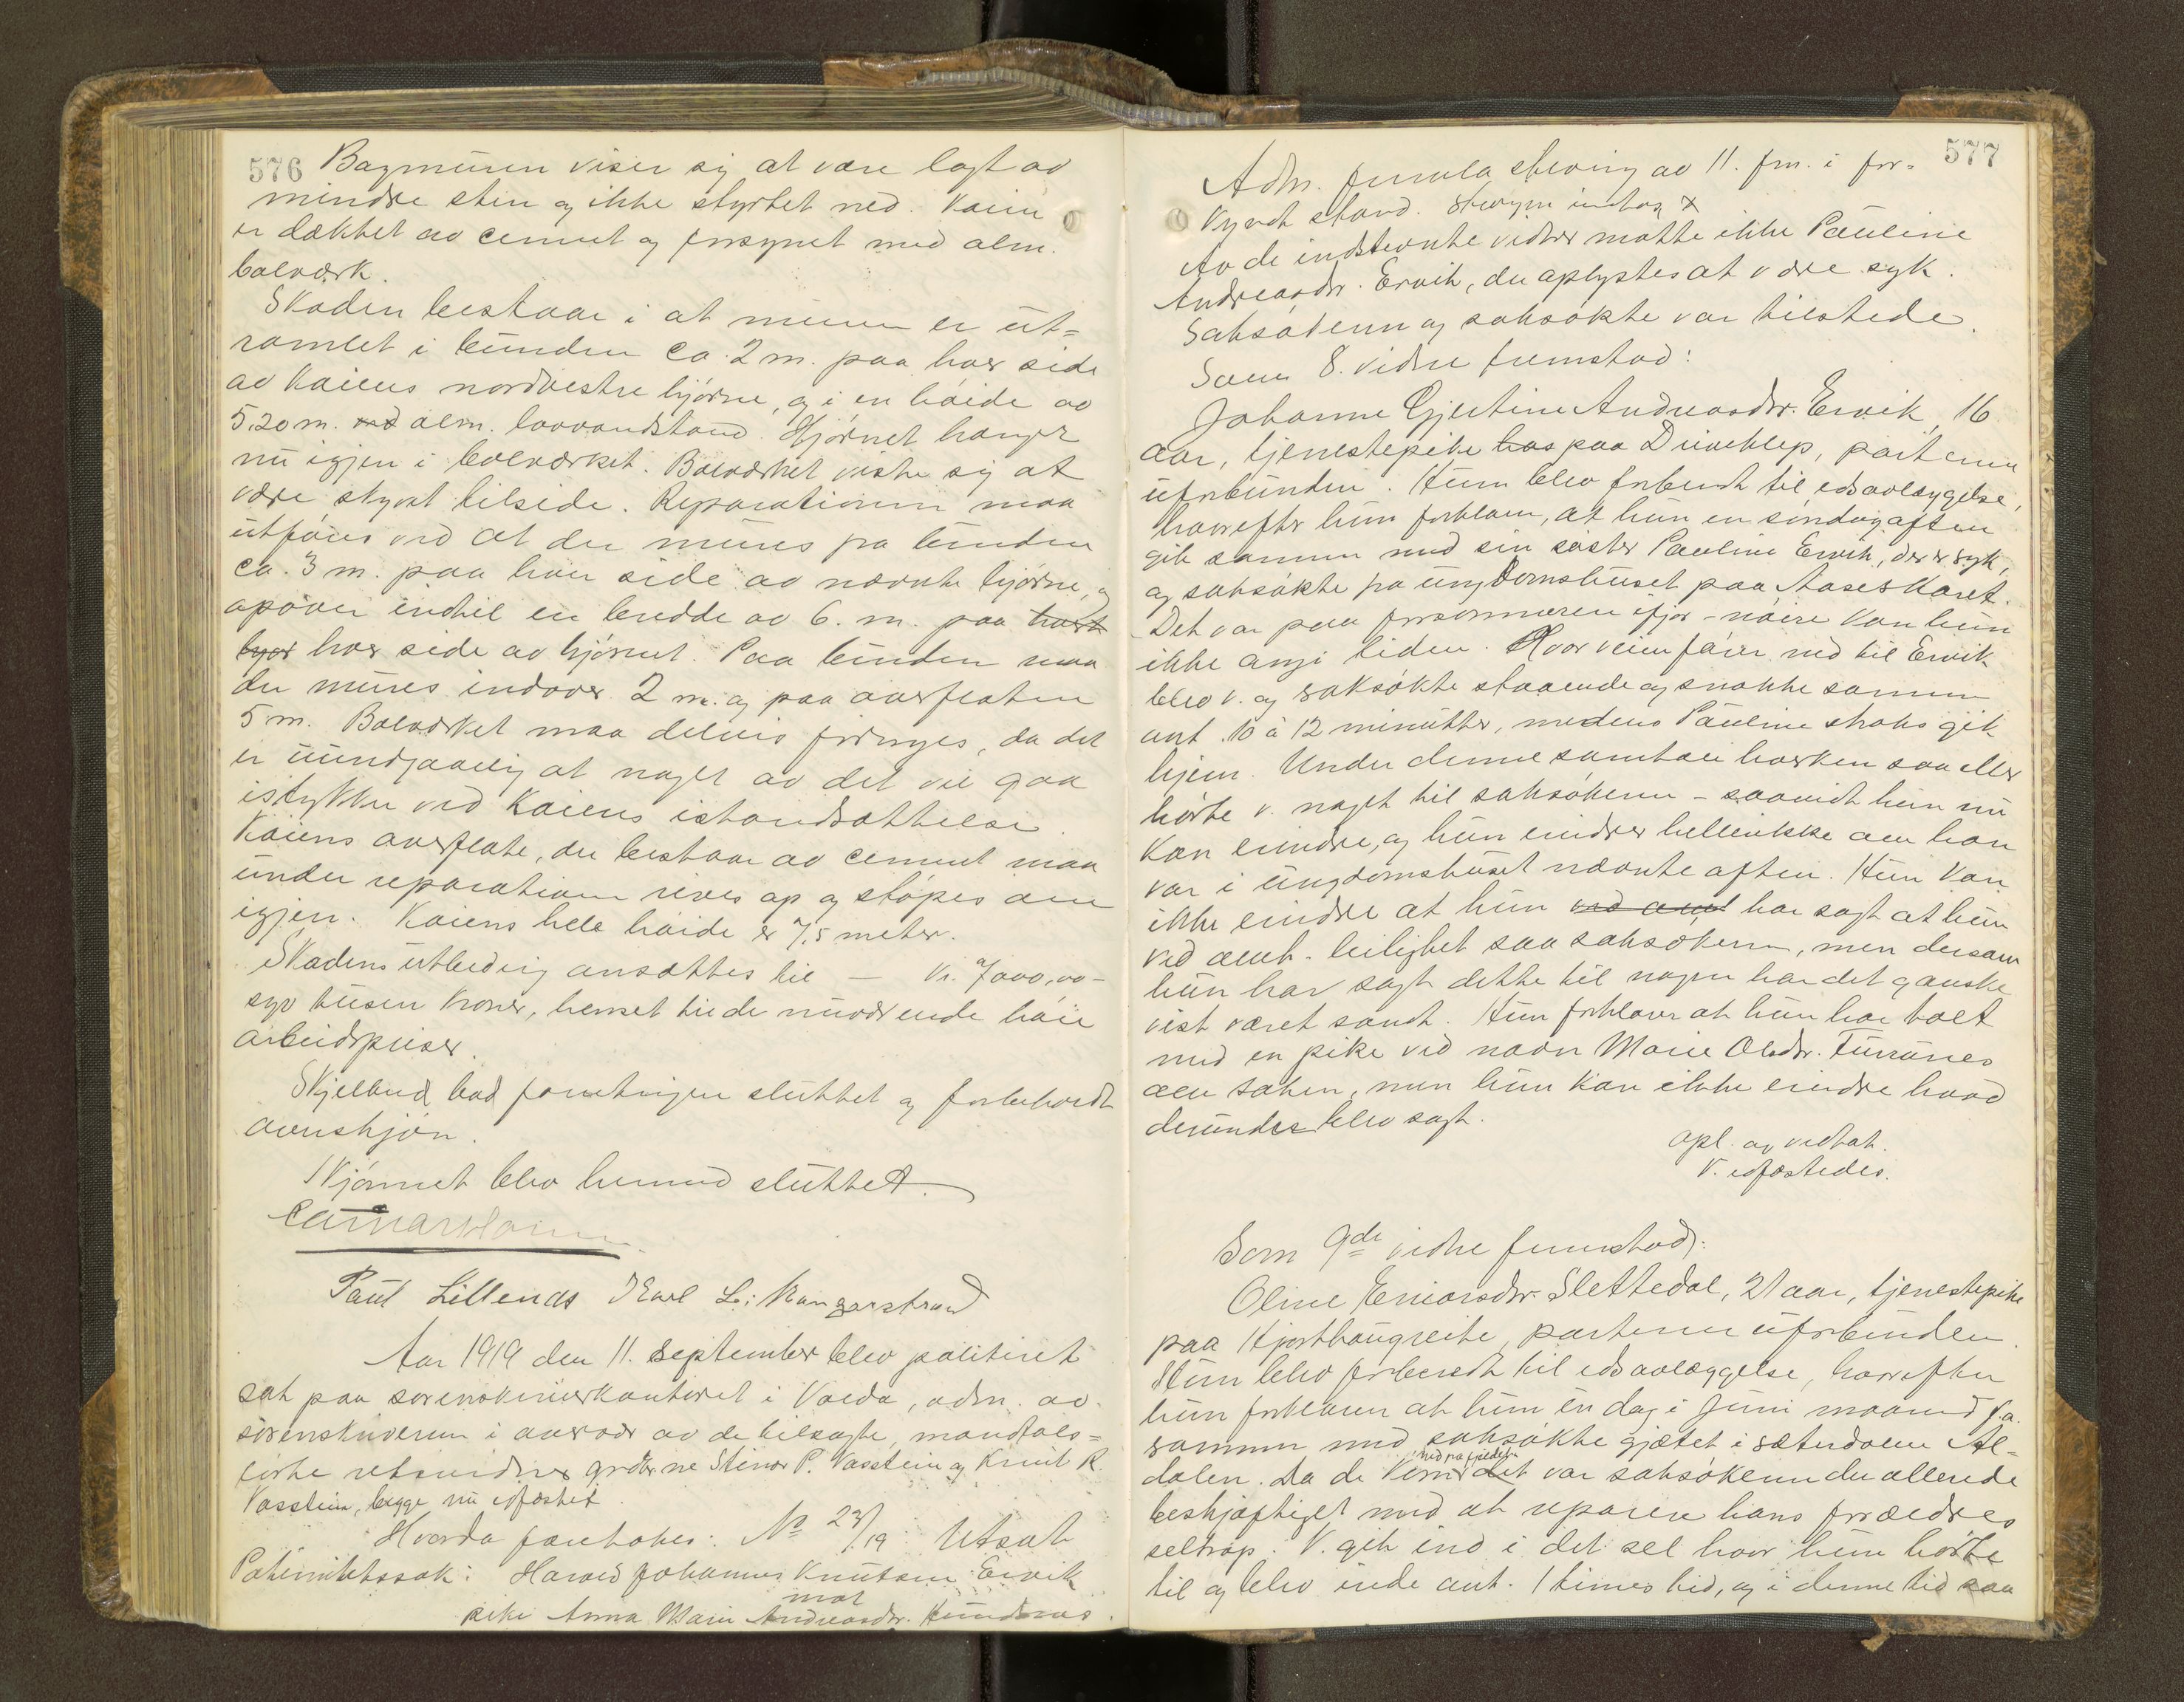 576 Bagmuren viser sig at være lagt av
mindre sten og ikke styrtet ned. Kaien
er dækket av cement og forsynet med alm.
bolværk.
Skaden bestaar i at muren er ut=
ramlet i bunden ca. 2 m. paa hver side
av kaiens nordvestre hjørne, og i en høide av
5.20 m. ved alm. lavvandstand. Hjørnet hænger
nu igjen i bolværket. Bolværket viste sig at
være skjøvet tilside. Reparationen maa
utføres ved at der mures fra bunden
ca. 3 m. paa hver side av nævnte hjørne, og
opover indtil en bredde av 6. m. paa
hver side av hjørnet. Paa bunden maa
der mures indover 2 m. og paa overflaten
5 m. Bolværket maa delvis fornyes, da det
er uundgaaelig at noget av det vil gaa
istykker ved kaiens istandsættelse.
Kaiens overflate, der bestaar av cement maa
under reparationen rives op og støpes om
igjen. Kaiens hele høide er 7,5 meter.
Skadens utbedring ansættes til — kr. 7000,00-
syv tusen kroner, henset til de nuværende høie
arbeidspriser.
Skjelbred bad forretningen sluttet og forbeholdt
overskjøn.
Skjønnet blev hermed sluttet.
Paul Lillenes Karl L: Mangerstrand
Aar 1919 den 11. september blev politiret
sat paa sorenskriverkontoret i Volda, adm. av
sorenskriveren i overvær av de tilsagte, mandtals=
førte retsvidner grdbr.ne Steinar P. Vasstein og Knut R.
Vasstein, begge nu edfæstet.
Hvorda foretokes: No 23/19: Utsat
Paternitetssak: Harald Johannes Knutsen Ervik
mot
pike Anna Marie Andreasdr. Hundsnes.
577
Adm. fremla stevning av 11. frm. i for=
kyndt stand. Stevningen indtas x
Av de indstevnte vidner møtte ikke Pauline
Andreasdr. Ervik, der oplystes at være syk.
Saksøkeren og saksøkte var tilstede.
Som 8. vidne fremstod:
Johanne Gjertine Andreasdr. Ervik, 16
aar, tjenestepike hos paa Duveklep, partene
uforbunden. Hun blev forberedt til edsavlæggelse,
hvorefter hun forklarer, at hun en søndag aften
gik sammen med sin søster Pauline Ervik, der er syk,
og saksøkte fra ungdomshuset paa Aaseskaret.
Det var paa forsommeren ifjor - nøiere kan hun
ikke angi tiden. Hvor veien fører ned til Ervik
blev v. og saksøkte staaende og snakke sammen
omt. 10 à 12 minutter, medens Pauline straks gik
hjem. Under denne samtale hverken saa eller
hørte v. noget til saksøkeren - saavidt hun nu
kan erindre, og hun erindrer hellerikke om han
var i ungdomshuset nævnte aften. Hun kan
ikke erindre at hun ved omt har sagt at hun
ved omt. leilighet saa saksøkeren, men dersom
hun har sagt dette til nogen har det ganske
vist været sandt. Hun forklarer at hun har talt
med en pike ved navn Marie Olsdr. Furunes
om saken, men hun kan ikke erindre hvad
derunder blev sagt.
Opl. og vedtat.
V. edfæstedes.
Som 9de vidne fremstod:
Oline Einarsdr. Slettedal, 21 aar, tjenestepike
paa Hjorthaugreite, partene uforbunden.
Hun blev forberedt til edsavlæggelse, hvorefter
hun forklarer at hun en dag i Juni maaned f.a.
sammen med saksøkte gjætet i sæterdalen Al=
dalen. Da de kom ned fra fjeldet var saksøkeren der allerede
beskjæftiget med at reparere hans forældres
seltrøp. V. gik ind i det sel hvor hun hørte
til og blev inde omt. 1 times tid, og i denne tid saa